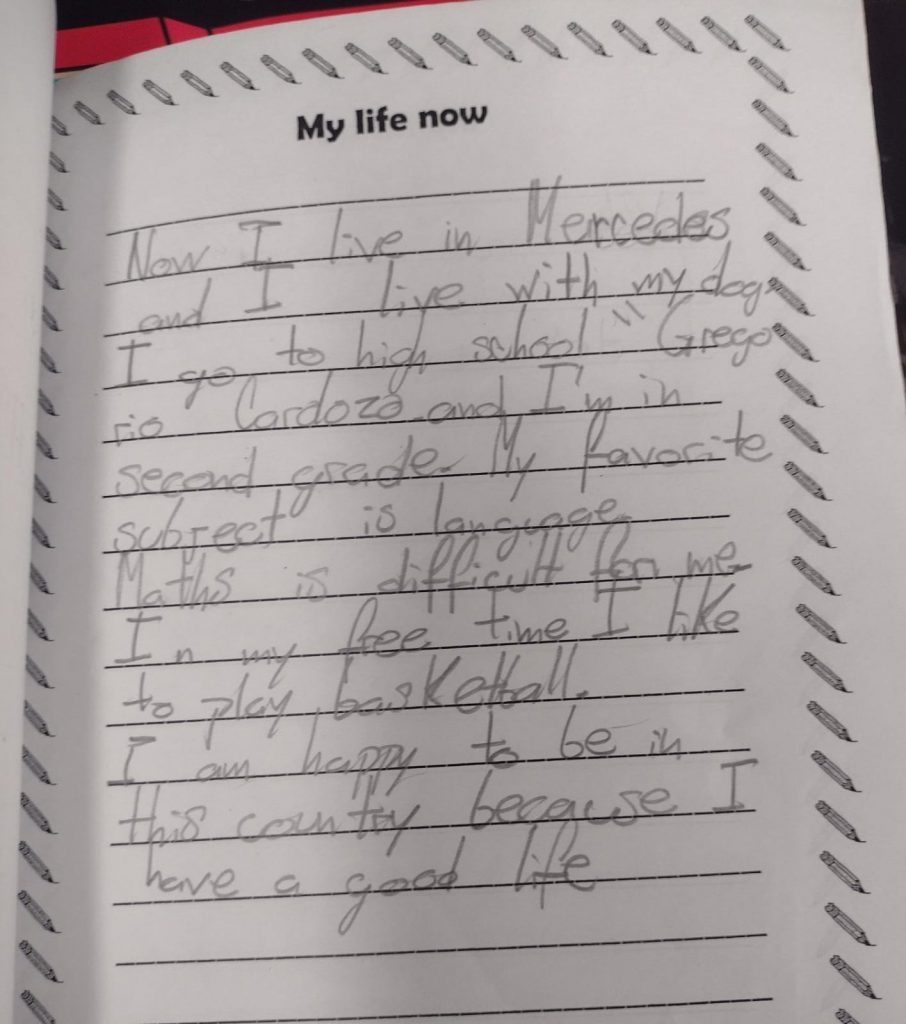 My life now
Now I live in Mercedes
and I live with my dog.
I go to high school " Grego
rio Cardozo and I'm in
second grade. My favorite
subject is language
Maths is difficult for me
In my free time I like
to play basketball.
I am happy to be in
this country because I
have a good life